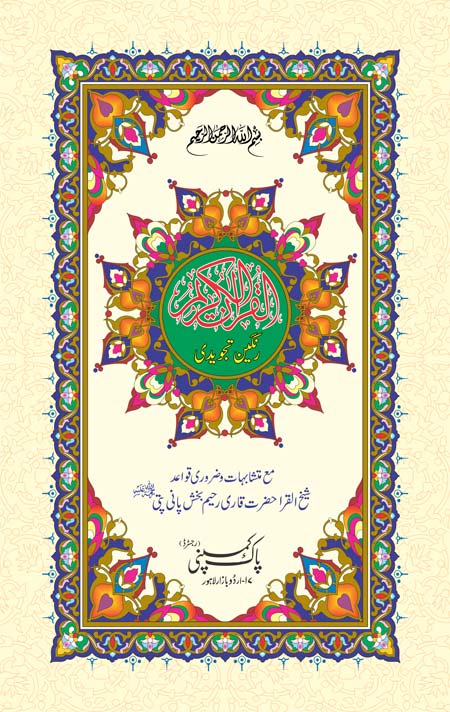 بسم الله الرحمن الرحيم
القرآن الكريم
رنگین تجویدی
مع متشابہات و ضروری قواعد
شیخ القرا حضرت قاری رحیم بخش پانی پتی رحمۃ اللہ علیہ
پاک کمپنی (رجسٹرڈ)
۱۷-اردو بازار لاہور